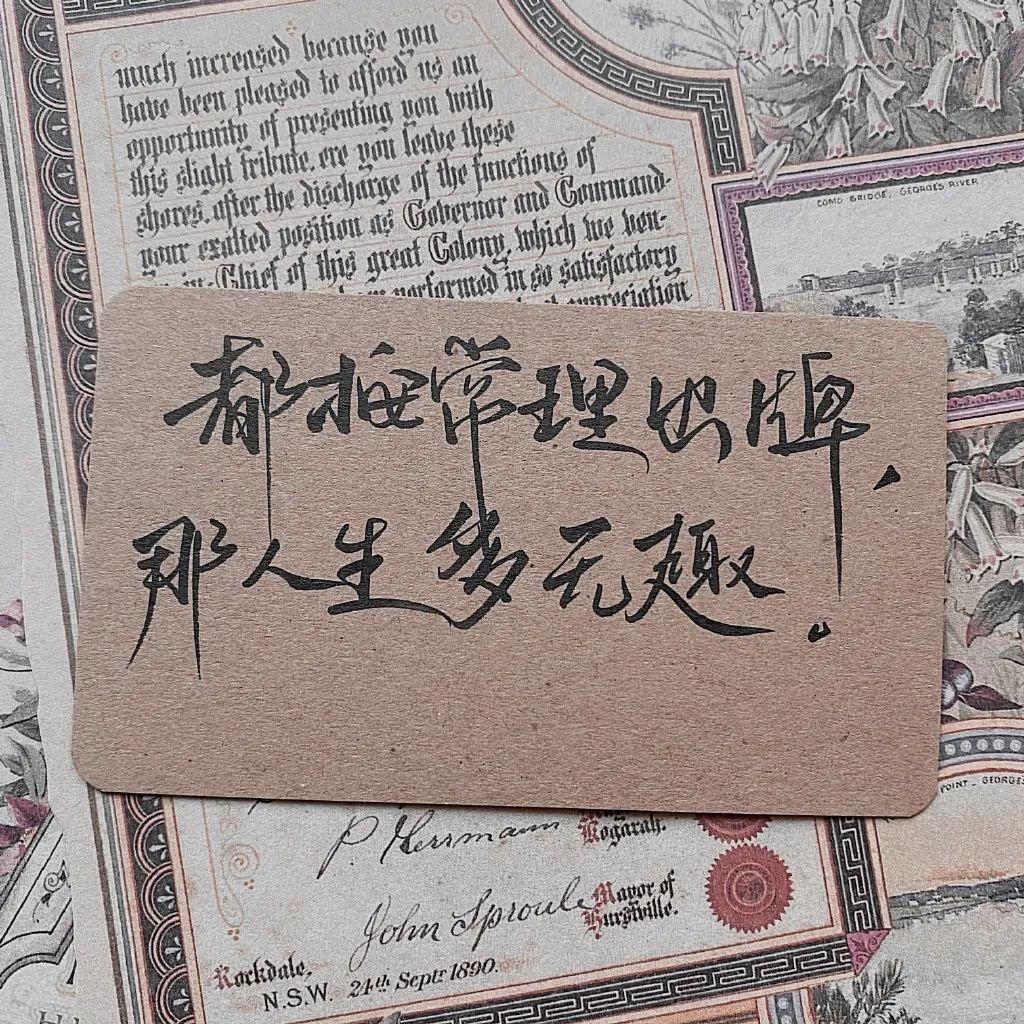 much increased because you
have been pleased to afford us an
opportunity of presenting you with
this slight tribute, ere you leave these
shores, after the discharge of the functions of
your exalted position as Governor and Command-
in-Chief of this great Colony, which we ven-
performed in so satisfactory
appreciation
COMO BRIDGE, GEORGE'S RIVER
都按常理出牌,
那人生多无趣。
POINT - GEORGES
P. Herrmann
Kogarah.
John Sproule
Mayor of
Hurstville.
Rockdale,
N.S.W. 24th Septr 1890.